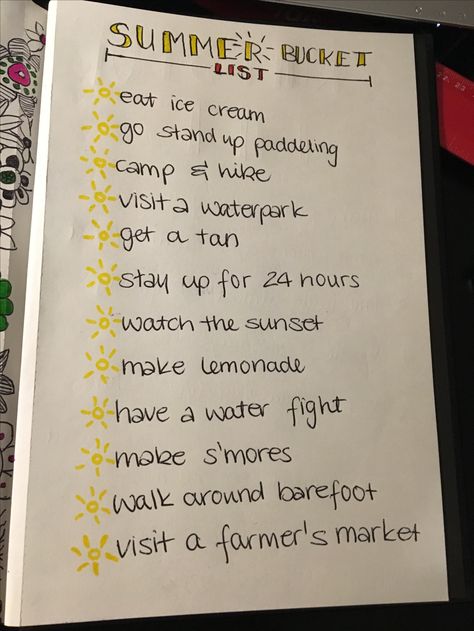 SUMMER BUCKET
LIST
eat ice cream
go stand up paddeling
camp & hike
visit a waterpark
get a tan
stay up for 24 hours
watch the sunset
make lemonade
have a water fight
make s'mores
walk around barefoot
visit a farmer's market